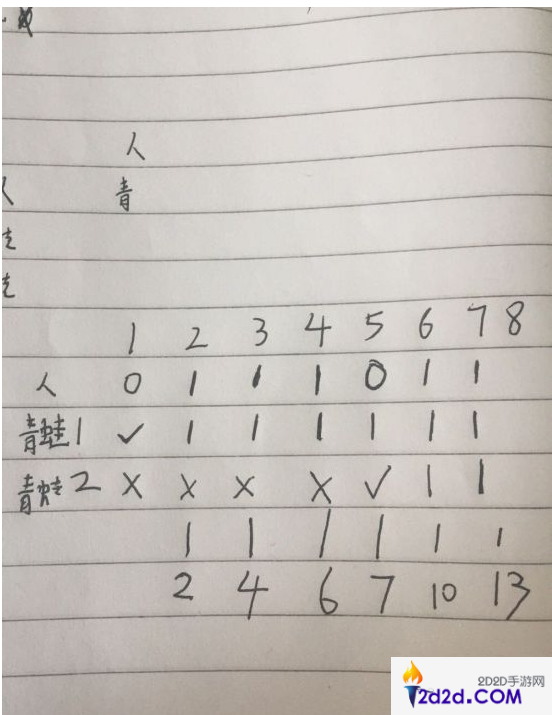 人
人 青
1 2 3 4 5 6 7 8
人 0 1 1 1 0 1 1
青蛙1 ✓ 1 1 1 1 1 1
青蛙2 X X X X ✓ 1 1
1 1 1 1 1 1
2 4 6 7 10 13
2D2D手游网
2d2d.COM